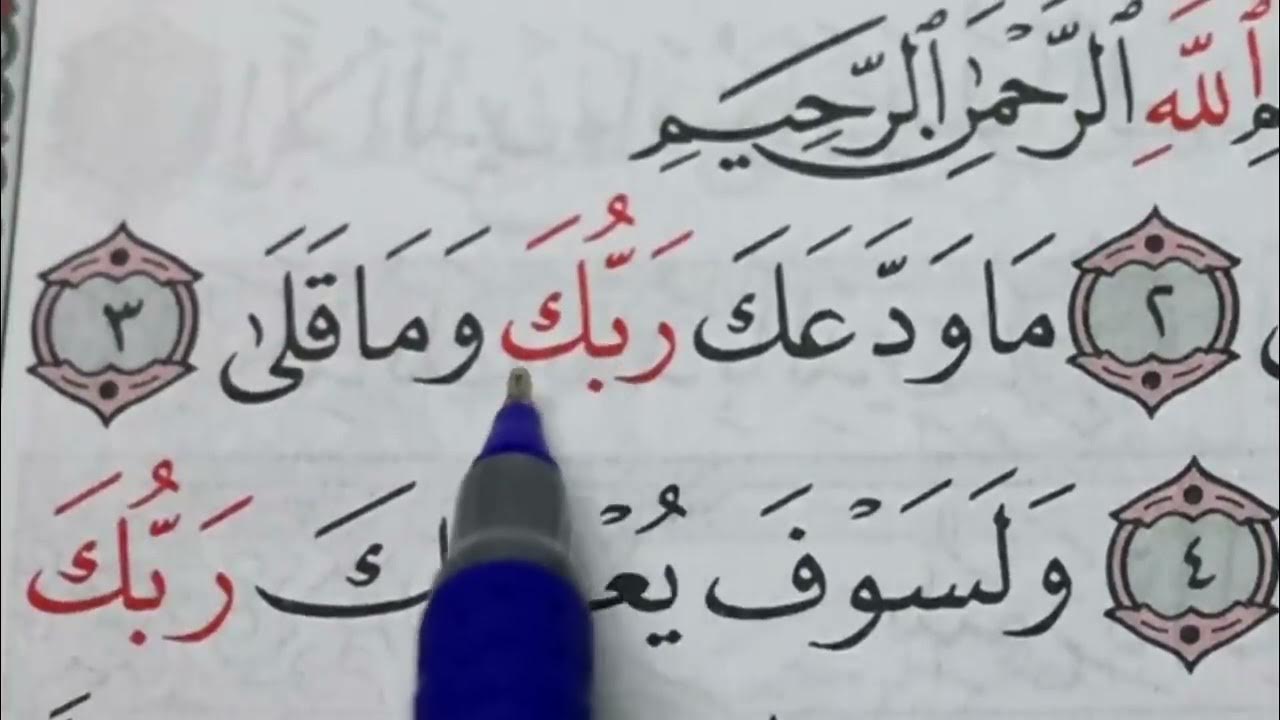 ٱللَّهِ ٱلرَّحْمَٰنِ ٱلرَّحِيمِ
٢ مَا وَدَّعَكَ رَبُّكَ وَمَا قَلَىٰ ٣
٤ وَلَسَوْفَ رَبُّكَ